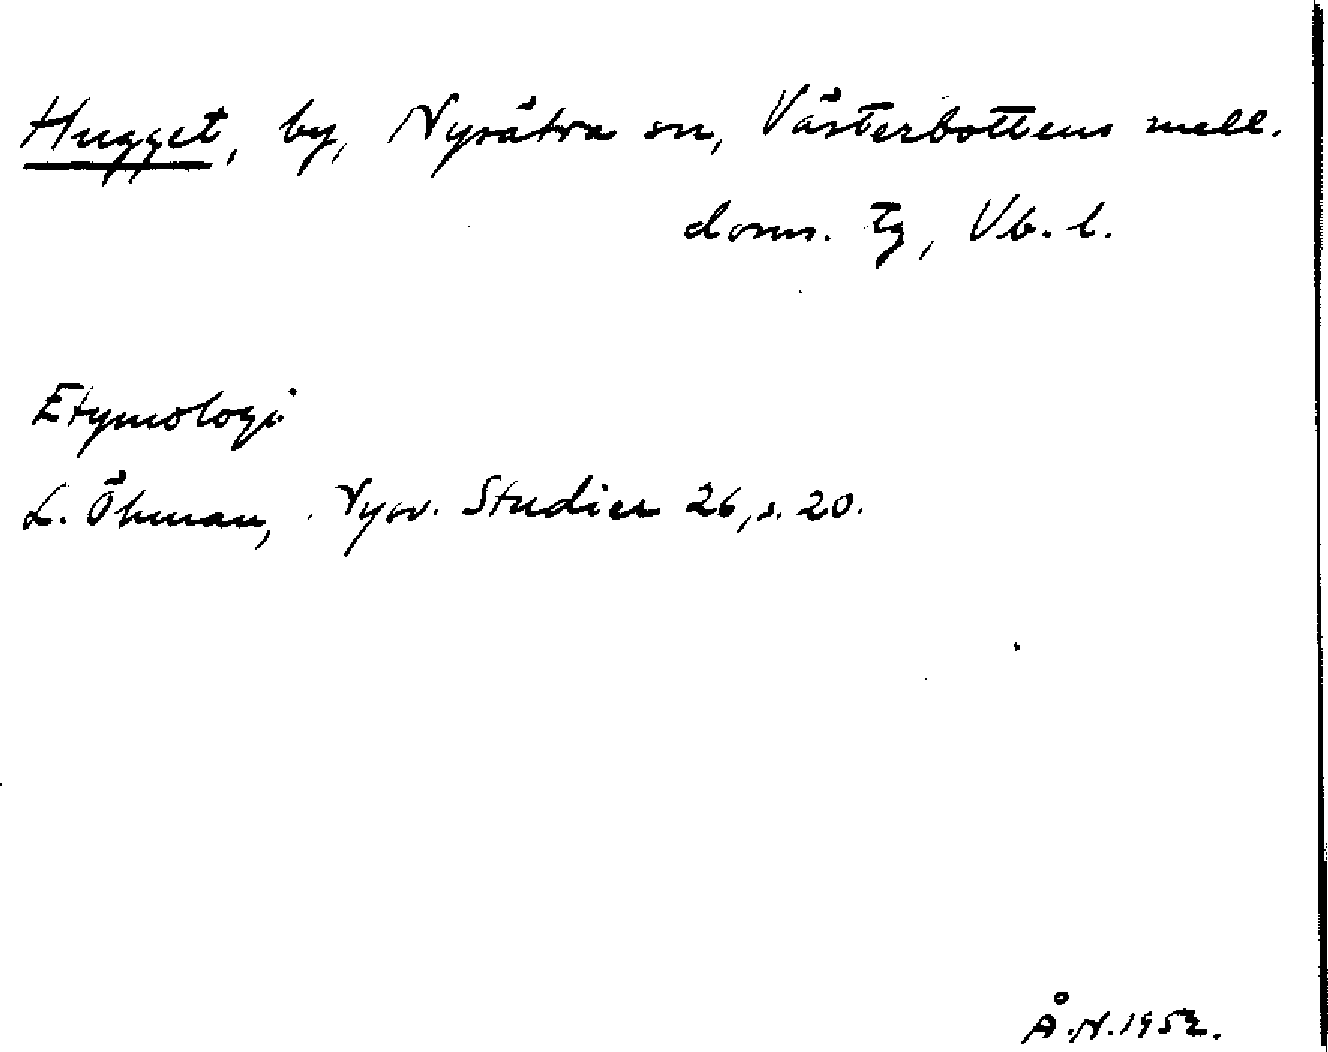 Hugget, by, Nysätra sn, Västerbottens mell.
doms. tg, Vb. l.
Etymologi
L. Öhman, Nysv. Studier 26, s. 20.
Å.N. 1952.